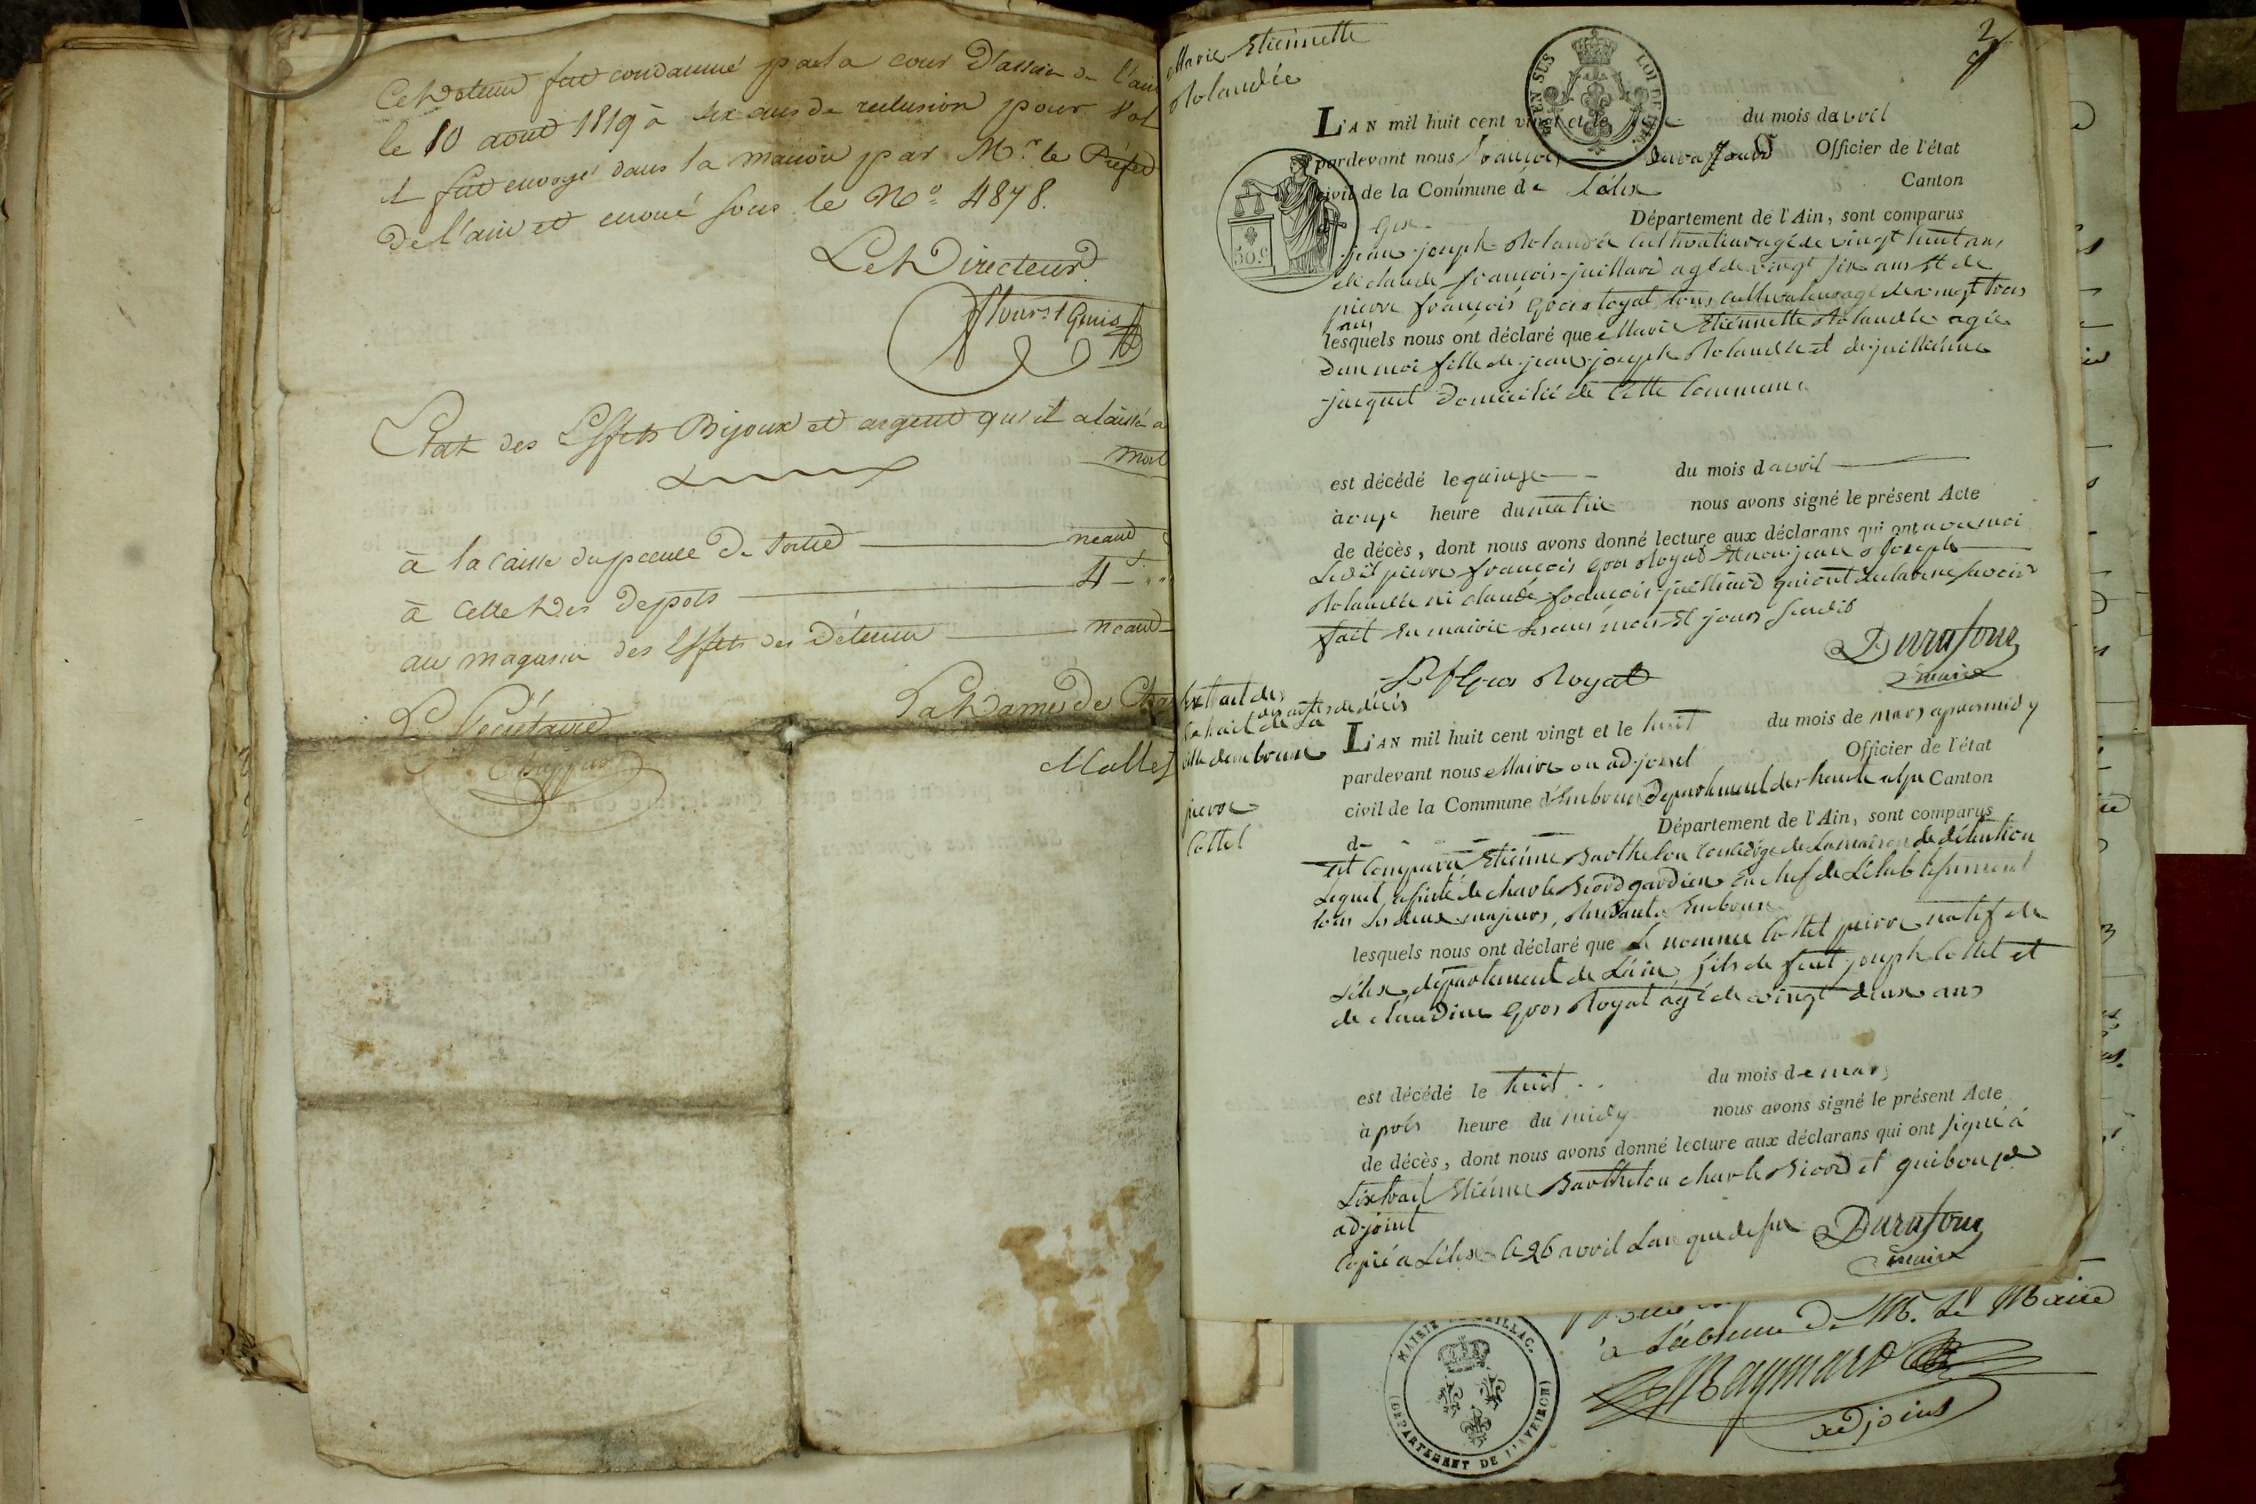 Ce Détenu fut condamné par la cour d'assise de l'ain
le 10 aout 1819 à six ans de reclusion pour Vol
et fut envoyé dans la maison par Mr. le Préfet
De l'ain et écroué sous le No. 4878.
Le Directeur
Etat des Effets Bijoux et argent qu'il a laissé a
mort
à la caisse du pecule De sortie — neant
à celle Des depots — 4
au magasin des Effets des Détenu — neant
Le Secrétaire
La Dame De
Mallet
2
Marie Etiennette
Rolandée
TIMBRE EN SUS
LOI DE 1816
50.c
L'AN mil huit cent vingt et le du mois d avril
pardevant nous françois Durafourd Officier de l'état
civil de la Commune de Lélex Canton
Gex Département de l'Ain, sont comparus
jean joseph Rolandée Cultivateur agé de vingt huit ans
et claude françois juilliard agé de vingt six ans et de
pierre françois Gros Royat tous cultivateur agé de vingt trois
ans
lesquels nous ont déclaré que Marie Etiennette Rolandée agée
Dun moi fille de jean joseph Rolandée et de juillienne
jacquet Domicilié de Cette Commune
est décédé le quinze du mois d avril
à onze heure du matin nous avons signé le présent Acte
de décès, dont nous avons donné lecture aux déclarans qui ont avec moi
Ledit pierre françois Gros Royat et non jean Joseph
Rolandée ni claude françois juilliard qui ont déclaré ne savoir
fait en mairie les ans mois et jours susdit
P f Gros Royat
Durafour
maire
Extrait des
des actes de décès
Extrait de La
ville dembrun
pierre
Cottet
L'AN mil huit cent vingt et le huit du mois de mars apres midy
pardevant nous Maire ou adjoint Officier de l'état
civil de la Commune d'Embrun Département des haute alpe Canton
d- Département de l'Ain, sont comparus
est Comparu Etienne Barthelon Concierge de La maison de détention
Lequel assisté de charle Bicord gardien en chef de L'établissement
tous les deux majeurs, Residant a Embrun
lesquels nous ont déclaré que Le nommé Cottet pierre natif de
Lélex département de L'ain fils de feut joseph Cottet et
de claudine Gros Royat agé de vingt deux ans
est décédé le huit du mois de mars
à prés heure du midy nous avons signé le présent Acte
de décès, dont nous avons donné lecture aux déclarans qui ont signé á
L'extrait Etienne Barthelon charle Bicord et
adjoint
Copié a Lélex le 26 avril Lan que dessus Durafour
maire
à L'absence De M. Le Maire
Raymard
adjoint
MAIRIE
(DÉPARTEMENT DE L'AVEIRON)